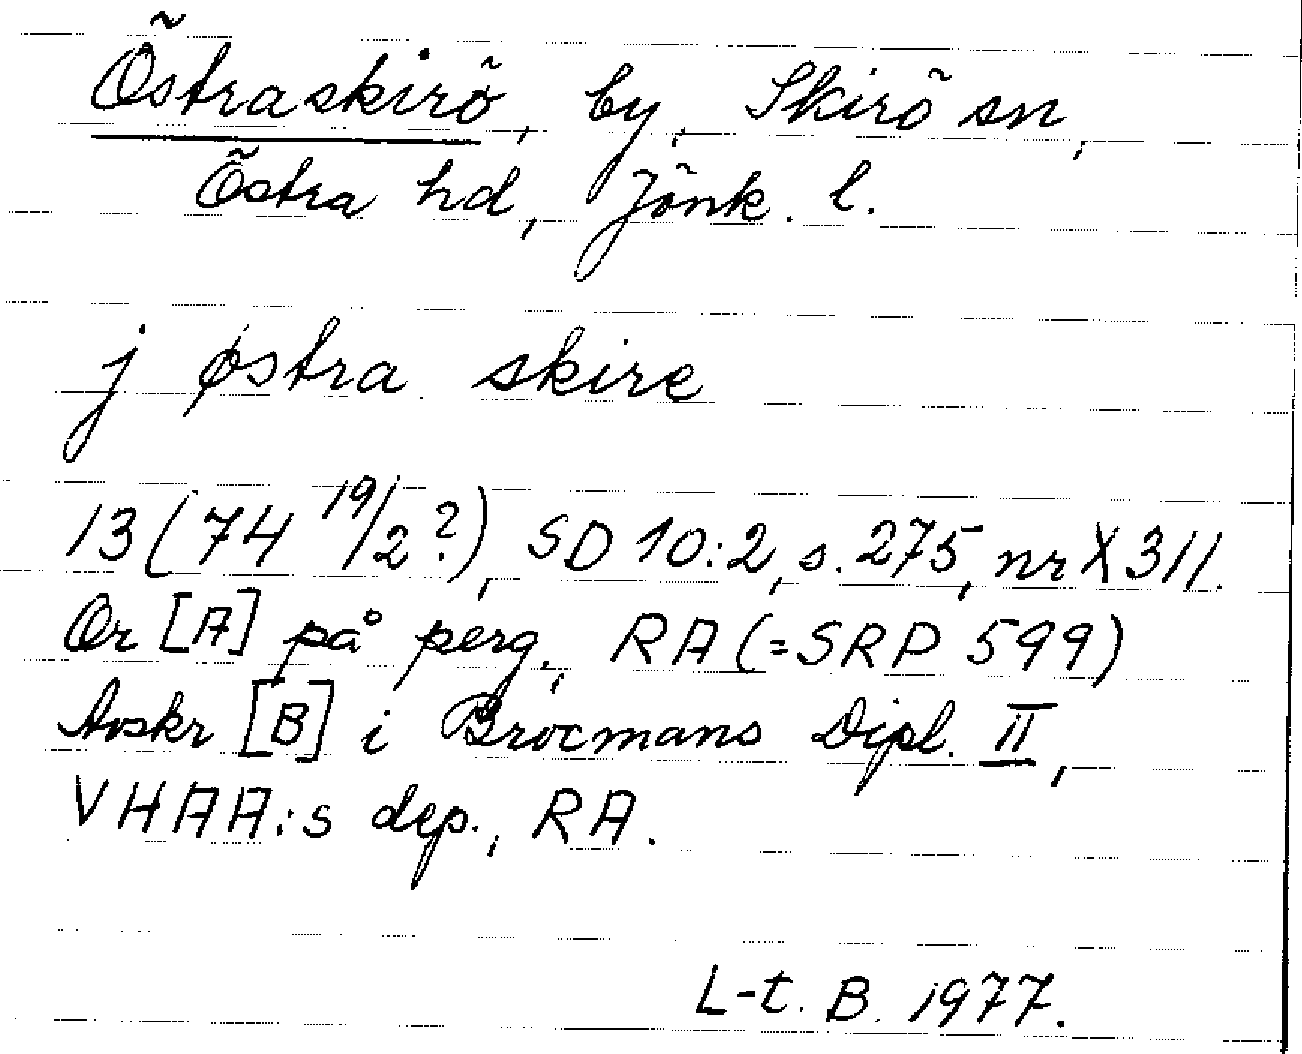 Östraskirö, by, Skirö sn,
Östra hd, Jönk. l.
j østra skire
13(74 19/2?), SD 10:2, s. 275, nr X311.
Or [A] på perg., RA (=SRP 599)
Avskr [B] i Brocmans Dipl. II,
VHAA:s dep., RA.
L-t. B. 1977.